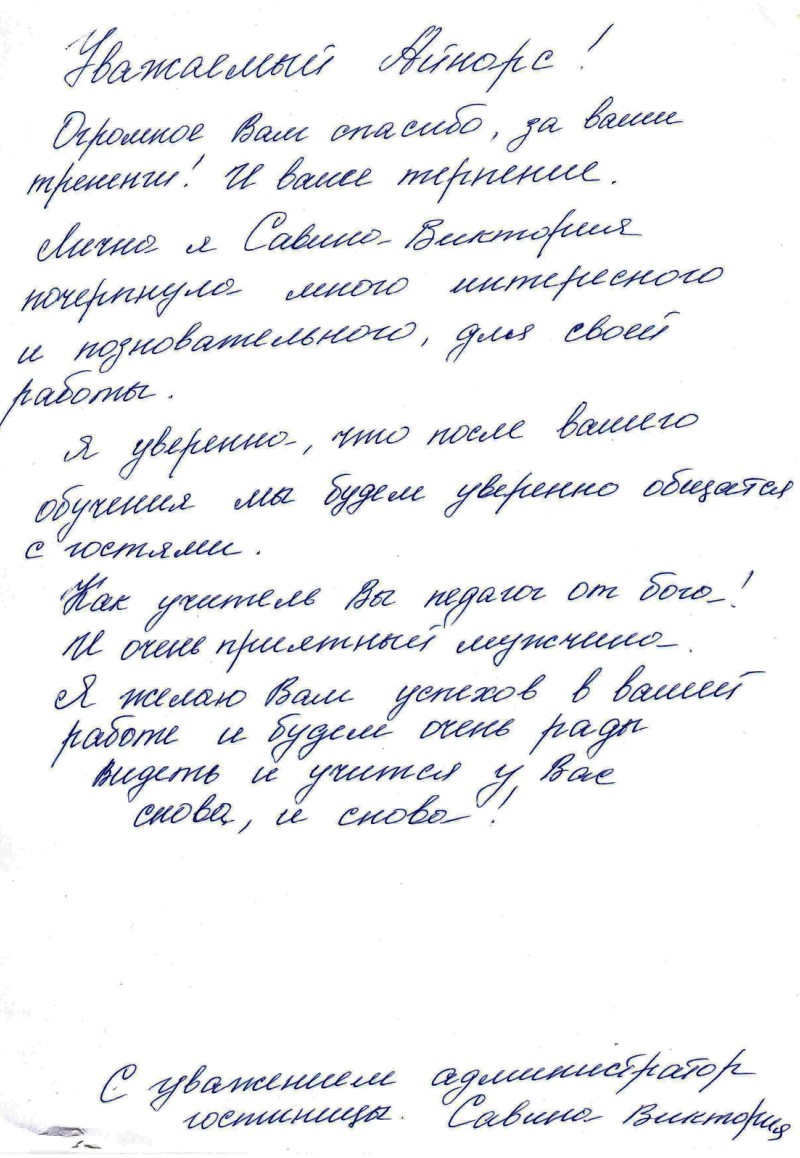 Уважаемый Айнарс!
Огромное Вам спасибо, за ваши
трененги! И ваше терпение.
Лично я Савина Виктория
почерпнула много интересного
и позновательного, для своей
работы.
Я уверенна, что после вашего
обучения мы будем уверенно общатся
с гостями.
Как учитель Вы педагог от бога!
И очень приятный мужчина.
Я желаю Вам успехов в вашей
работе и будем очень рады
видеть и учится у Вас
снова, и снова!
С уважением администратор
гостиницы. Савина Виктория